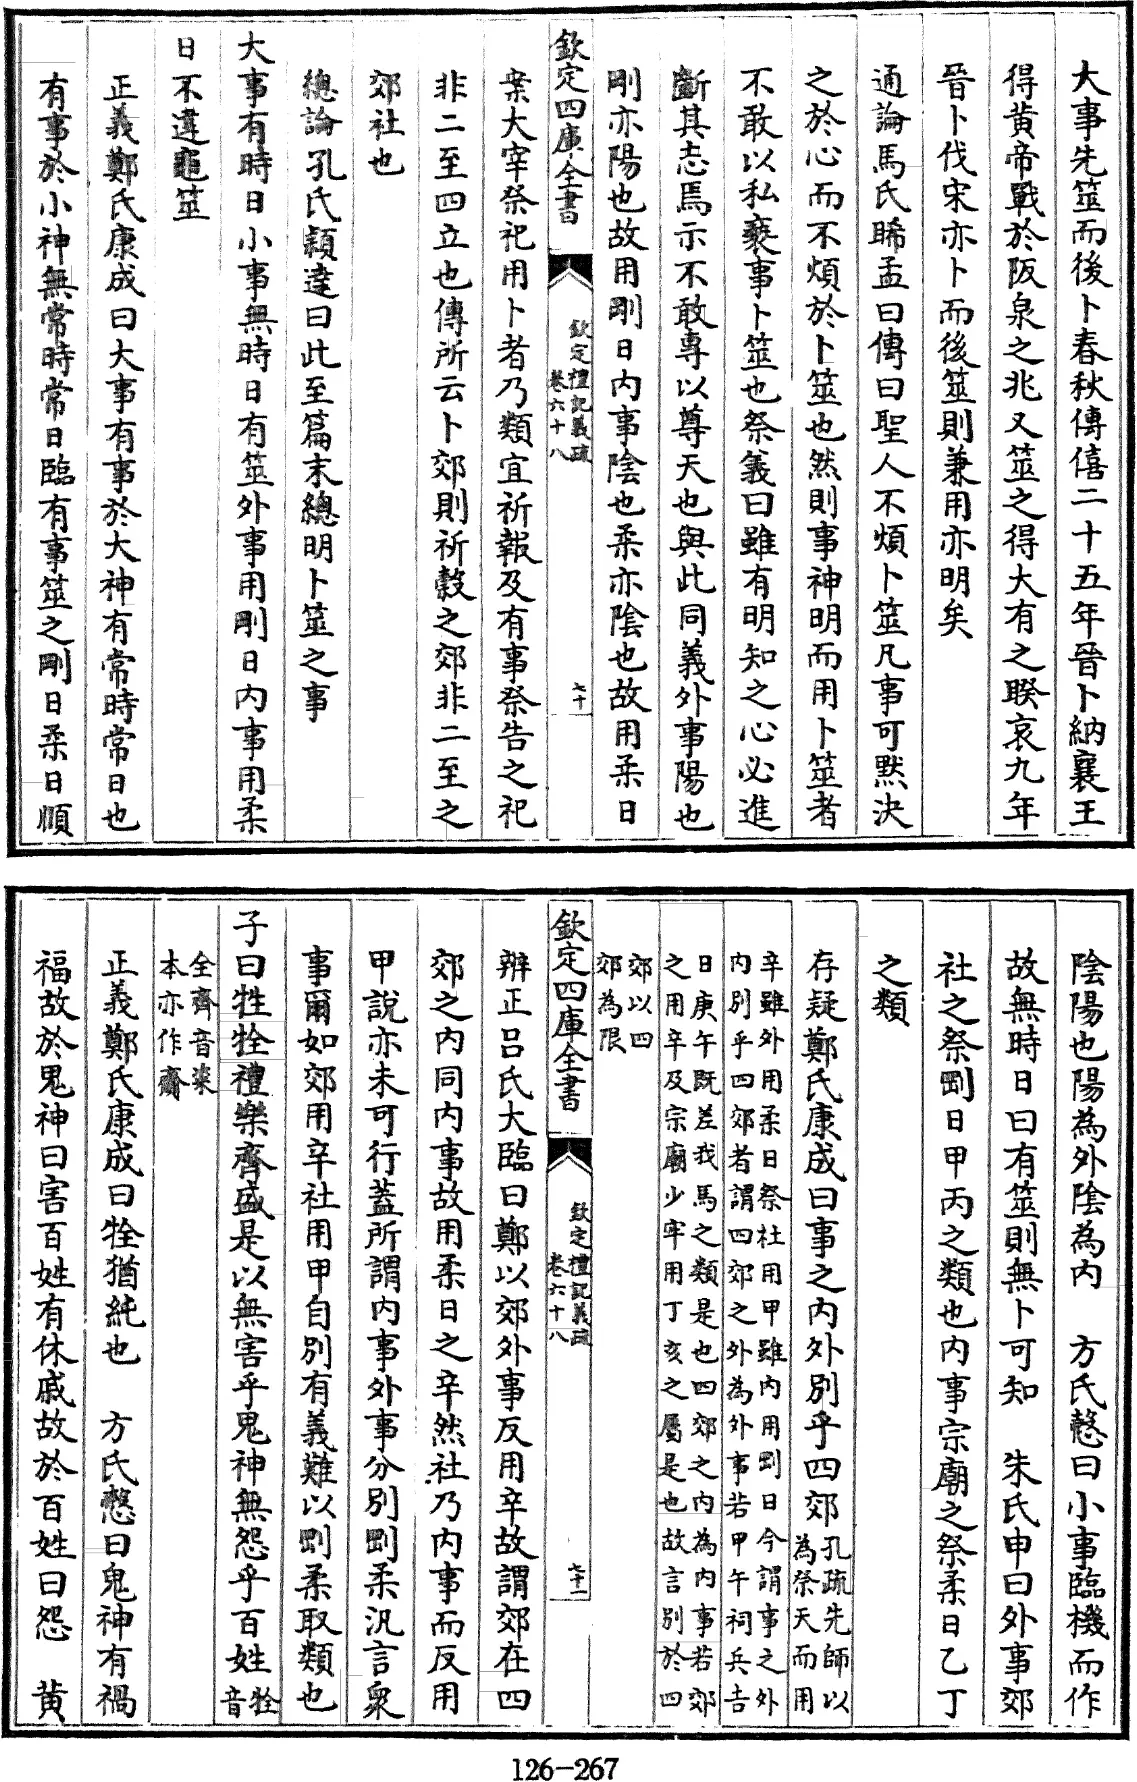 大事先筮而後卜春秋傳僖二十五年晉卜納襄王
得黄帝戰於阪泉之兆又筮之得大有之睽哀九年
晉卜伐宋亦卜而後筮則兼用亦明矣
通論馬氏睎孟曰傳曰聖人不煩卜筮凡事可黙決
之於心而不煩於卜筮也然則事神明而用卜筮者
不敢以私褻事卜筮也祭義曰雖有明知之心必進
斷其志焉示不敢專以尊天也與此同義外事陽也
剛亦陽也故用剛日内事陰也柔亦陰也故用柔日
欽定四庫全書
欽定禮記義疏
卷六十八
六十
案大宰祭祀用卜者乃類宜祈報及有事祭告之祀
非二至四立也傳所云卜郊則祈穀之郊非二至之
郊社也
總論孔氏頴達曰此至篇末總明卜筮之事
大事有時日小事無時日有筮外事用剛日内事用柔
日不違龜筮
正義鄭氏康成曰大事有事於大神有常時常日也
有事於小神無常時常日臨有事筮之剛日柔日順
陰陽也陽為外陰為内 方氏慤曰小事臨機而作
故無時日曰有筮則無卜可知 朱氏申曰外事郊
社之祭剛日甲丙之類也内事宗廟之祭柔日乙丁
之類
存疑鄭氏康成曰事之内外别乎四郊孔疏先師以
為祭天而用
辛雖外用柔日祭社用甲雖内用剛日今謂事之外
内别乎四郊者謂四郊之外為外事若甲午祠兵吉
日庚午既差我馬之類是也四郊之内為内事若郊
之用辛及宗廟少牢用丁亥之屬是也故言别於四
郊以四
郊為限
欽定四庫全書
欽定禮記義疏
卷六十八
六十一
辨正吕氏大臨曰鄭以郊外事反用辛故謂郊在四
郊之内同内事故用柔日之辛然社乃内事而反用
甲説亦未可行蓋所謂内事外事分别剛柔汎言衆
事爾如郊用辛社用甲自别有義難以剛柔取類也
子曰牲牷禮樂齊盛是以無害乎鬼神無怨乎百姓牷
音
全齊音粢
本亦作齋
正義鄭氏康成曰牷猶純也 方氏慤曰鬼神有禍
福故於鬼神曰害百姓有休戚故於百姓曰怨 黄
126-267